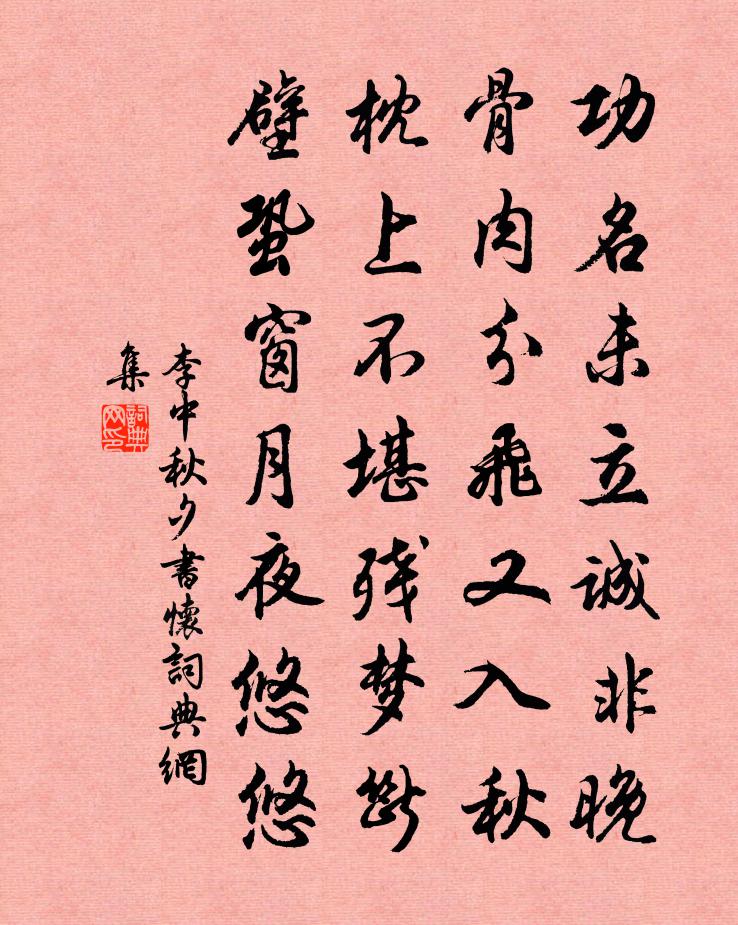 功名未立诚非晚
骨肉分飞又入秋
枕上不堪残梦断
壁蛩窗月夜悠悠
李中秋夕書懷詞典網
集
詞典
网印